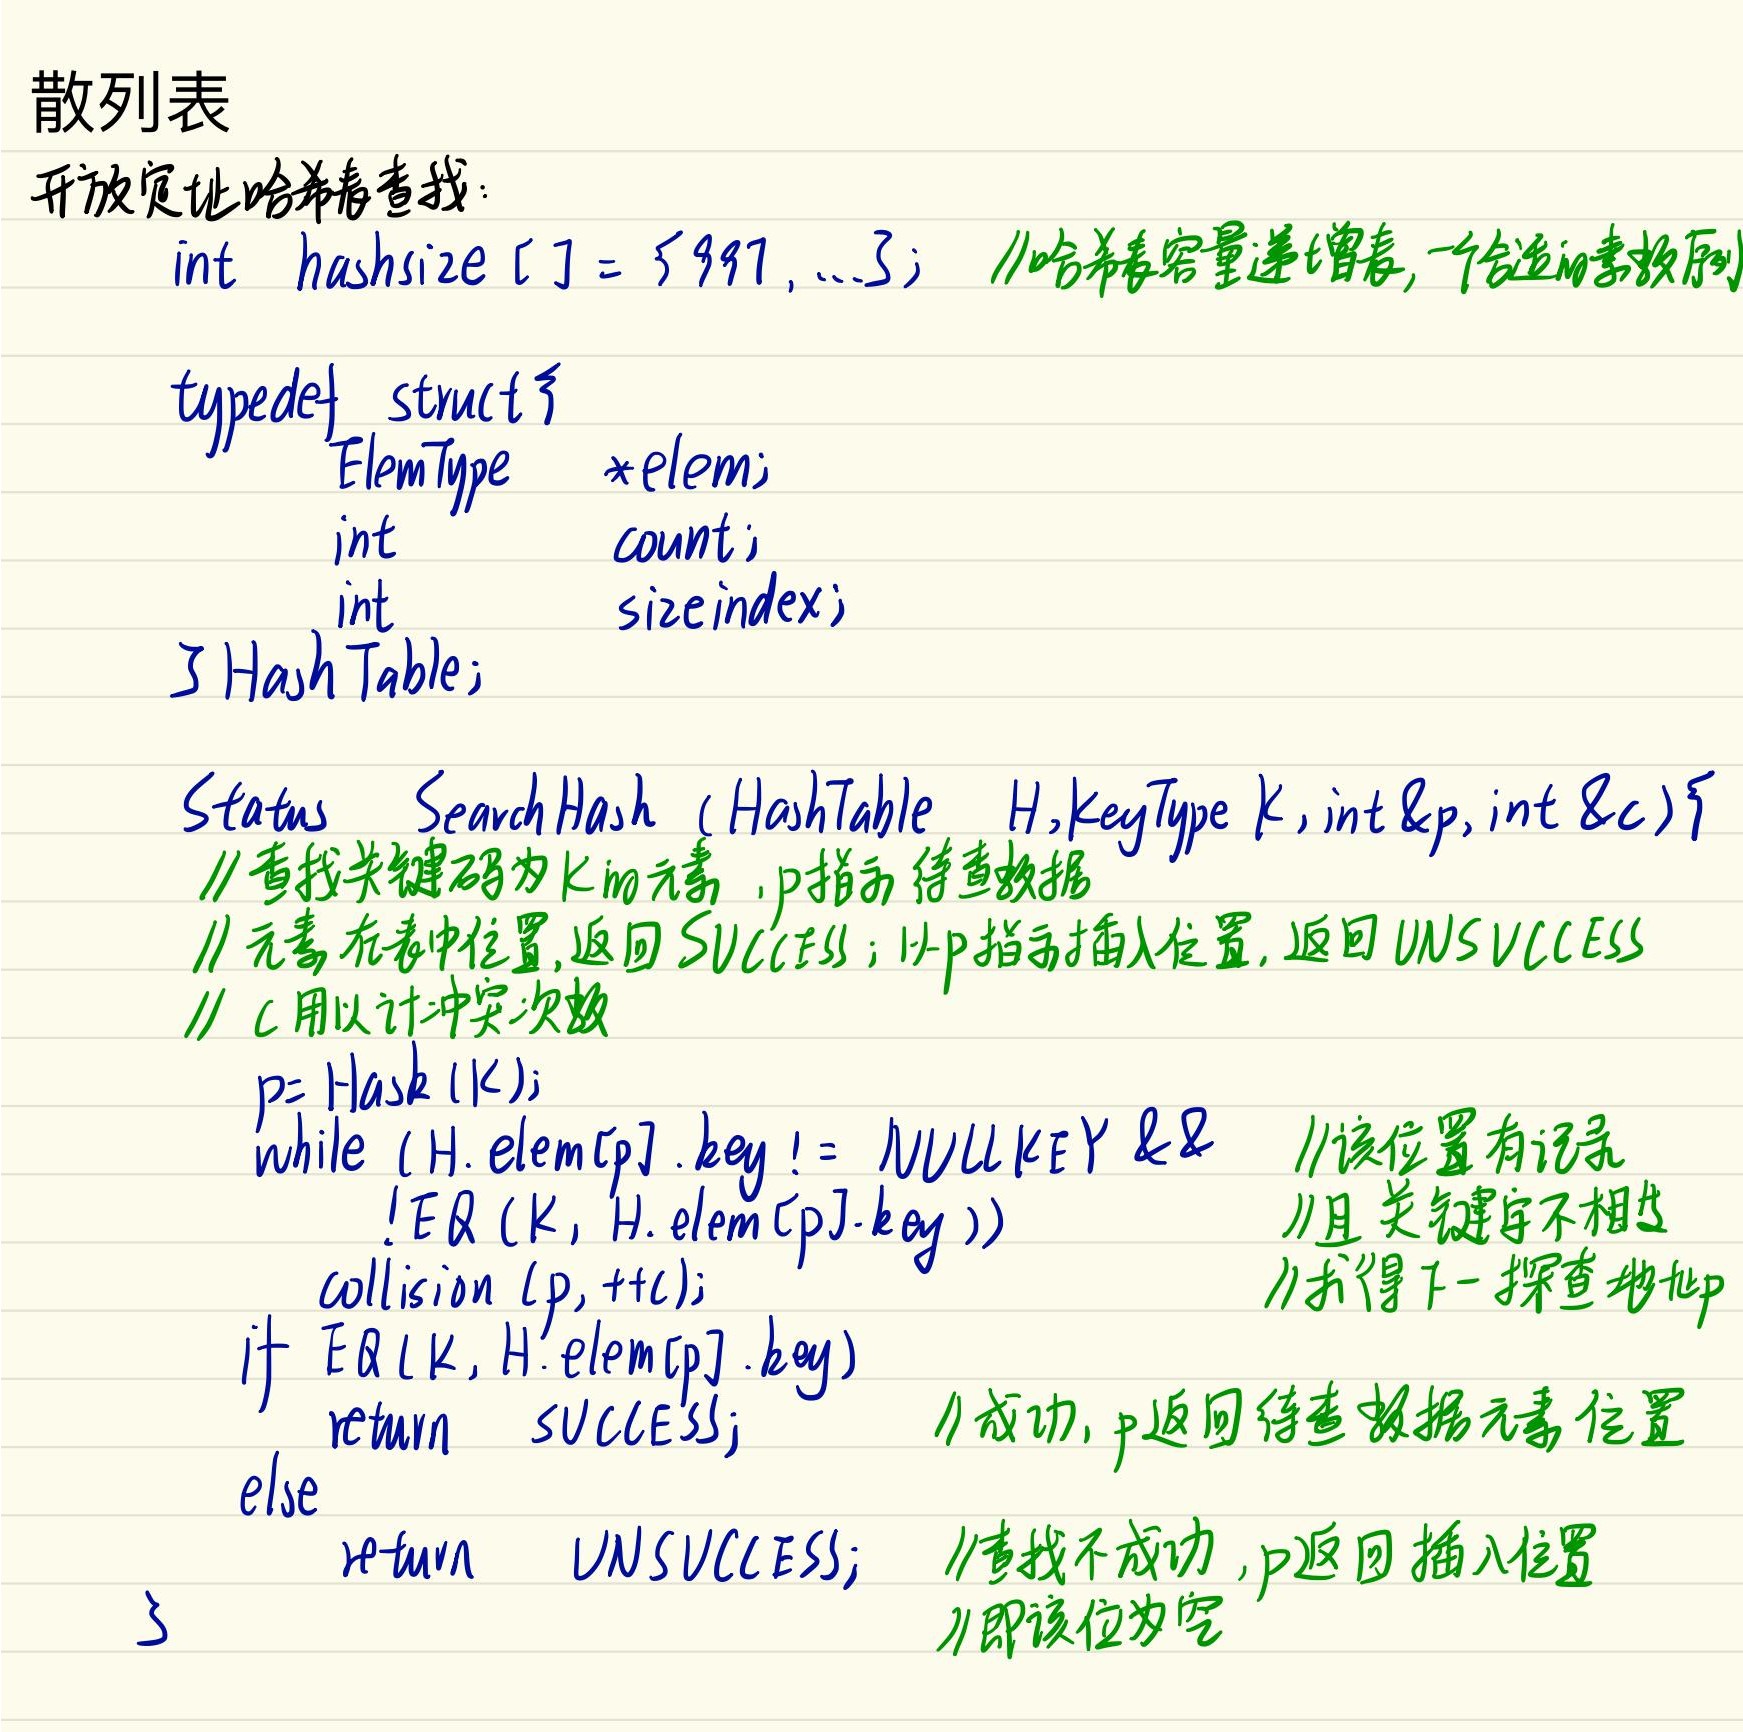 散列表
开放定址哈希表查找:
int hashsize [ ] = { 997, ...}; //哈希表容量递增表,一个合适的素数序列
typedef struct {
ElemType *elem;
int count;
int sizeindex;
} HashTable;
Status SearchHash (HashTable H, KeyType K, int &p, int &c) {
//查找关键码为K的元素,p指示待查数据
//元素在表中位置,返回SUCCESS;以p指示插入位置,返回UNSUCCESS
//c用以计冲突次数
p= Hash (K);
while (H. elem[p].key != NULLKEY && //该位置有记录
!EQ (K, H. elem [p].key )) //且关键字不相等
collision (p, ++c); //求得下一探查地址p
if EQ(K, H. elem[p].key)
return SUCCESS; //成功,p返回待查数据元素位置
else
return UNSUCCESS; //查找不成功,p返回插入位置
} //即该位为空